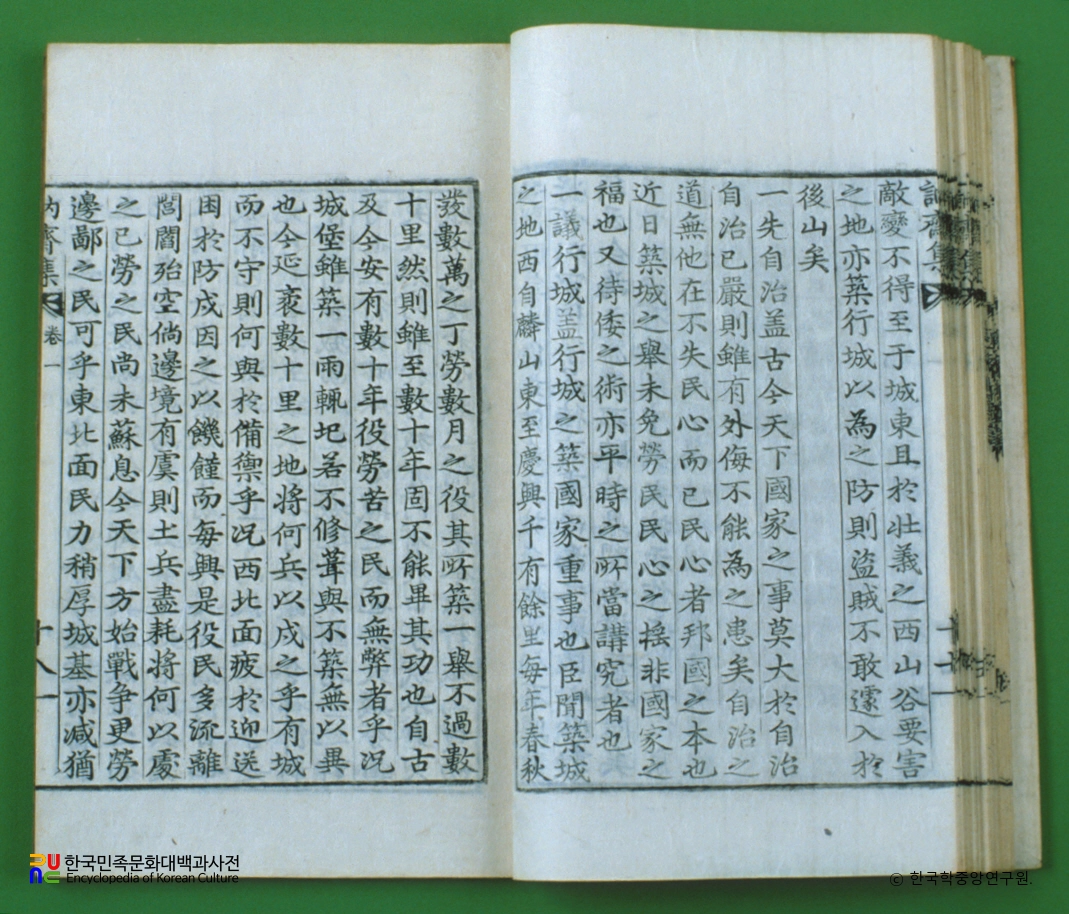 訥齋集
敵變不得至于城東且於壯義之西山谷要害
之地亦築行城以為之防則盜賊不敢遽入於
後山矣
一先自治盖古今天下國家之事莫大於自治
自治已嚴則雖有外侮不能為之患矣自治之
道無他在不失民心而已民心者邦國之本也
近日築城之擧未免勞民民心之搖非國家之
福也又待倭之術亦平時之所當講究者也
一議行城盖行城之築國家重事也臣聞築城
之地西自麟山東至慶興千有餘里每年春秋
發數萬之丁勞數月之役其所築一擧不過數
十里然則雖至數十年固不能畢其功也自古
及今安有數十年役勞苦之民而無弊者乎况
城堡雖築一雨輒圯若不修葺與不築無以異
也今延袤數十里之地将何兵以戍之乎有城
而不守則何與於備禦乎况西北面疲於迎送
困於防戍因之以饑饉而每興是役民多流離
閭閻殆空倘邊境有虞則土兵盡耗将何以處
之已勞之民尚未蘇息今天下方始戰爭更勞
邊鄙之民可乎東北面民力稍厚城基亦减猶
訥齋集 卷一 十八
한국민족문화대백과사전
Encyclopedia of Korean Culture
© 한국학중앙연구원.